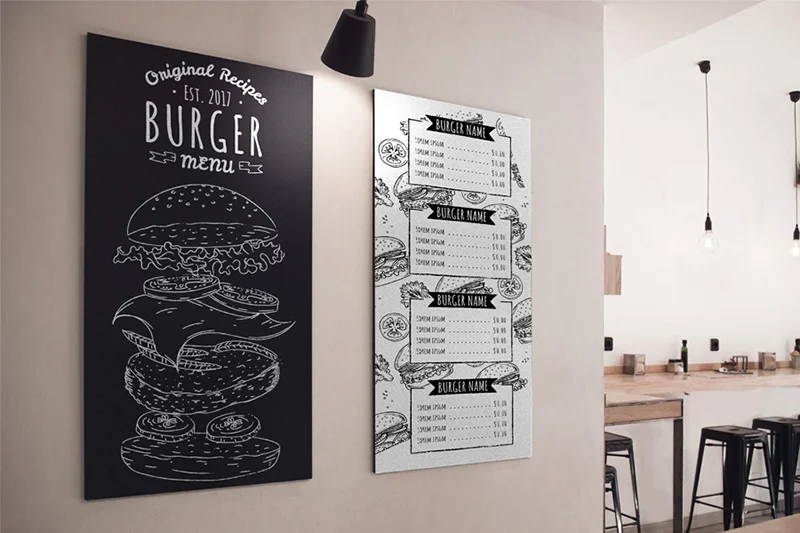 Original Recipes
• EST. 2017 •
BURGER
menu
BURGER NAME
LOREM IPSUM ........ $0.00
LOREM IPSUM ........ $0.00
LOREM IPSUM ........ $0.00
LOREM IPSUM ........ $0.00
BURGER NAME
LOREM IPSUM ........ $0.00
LOREM IPSUM ........ $0.00
LOREM IPSUM ........ $0.00
LOREM IPSUM ........ $0.00
BURGER NAME
LOREM IPSUM ........ $0.00
LOREM IPSUM ........ $0.00
LOREM IPSUM ........ $0.00
LOREM IPSUM ........ $0.00
BURGER NAME
LOREM IPSUM ........ $0.00
LOREM IPSUM ........ $0.00
LOREM IPSUM ........ $0.00
LOREM IPSUM ........ $0.00